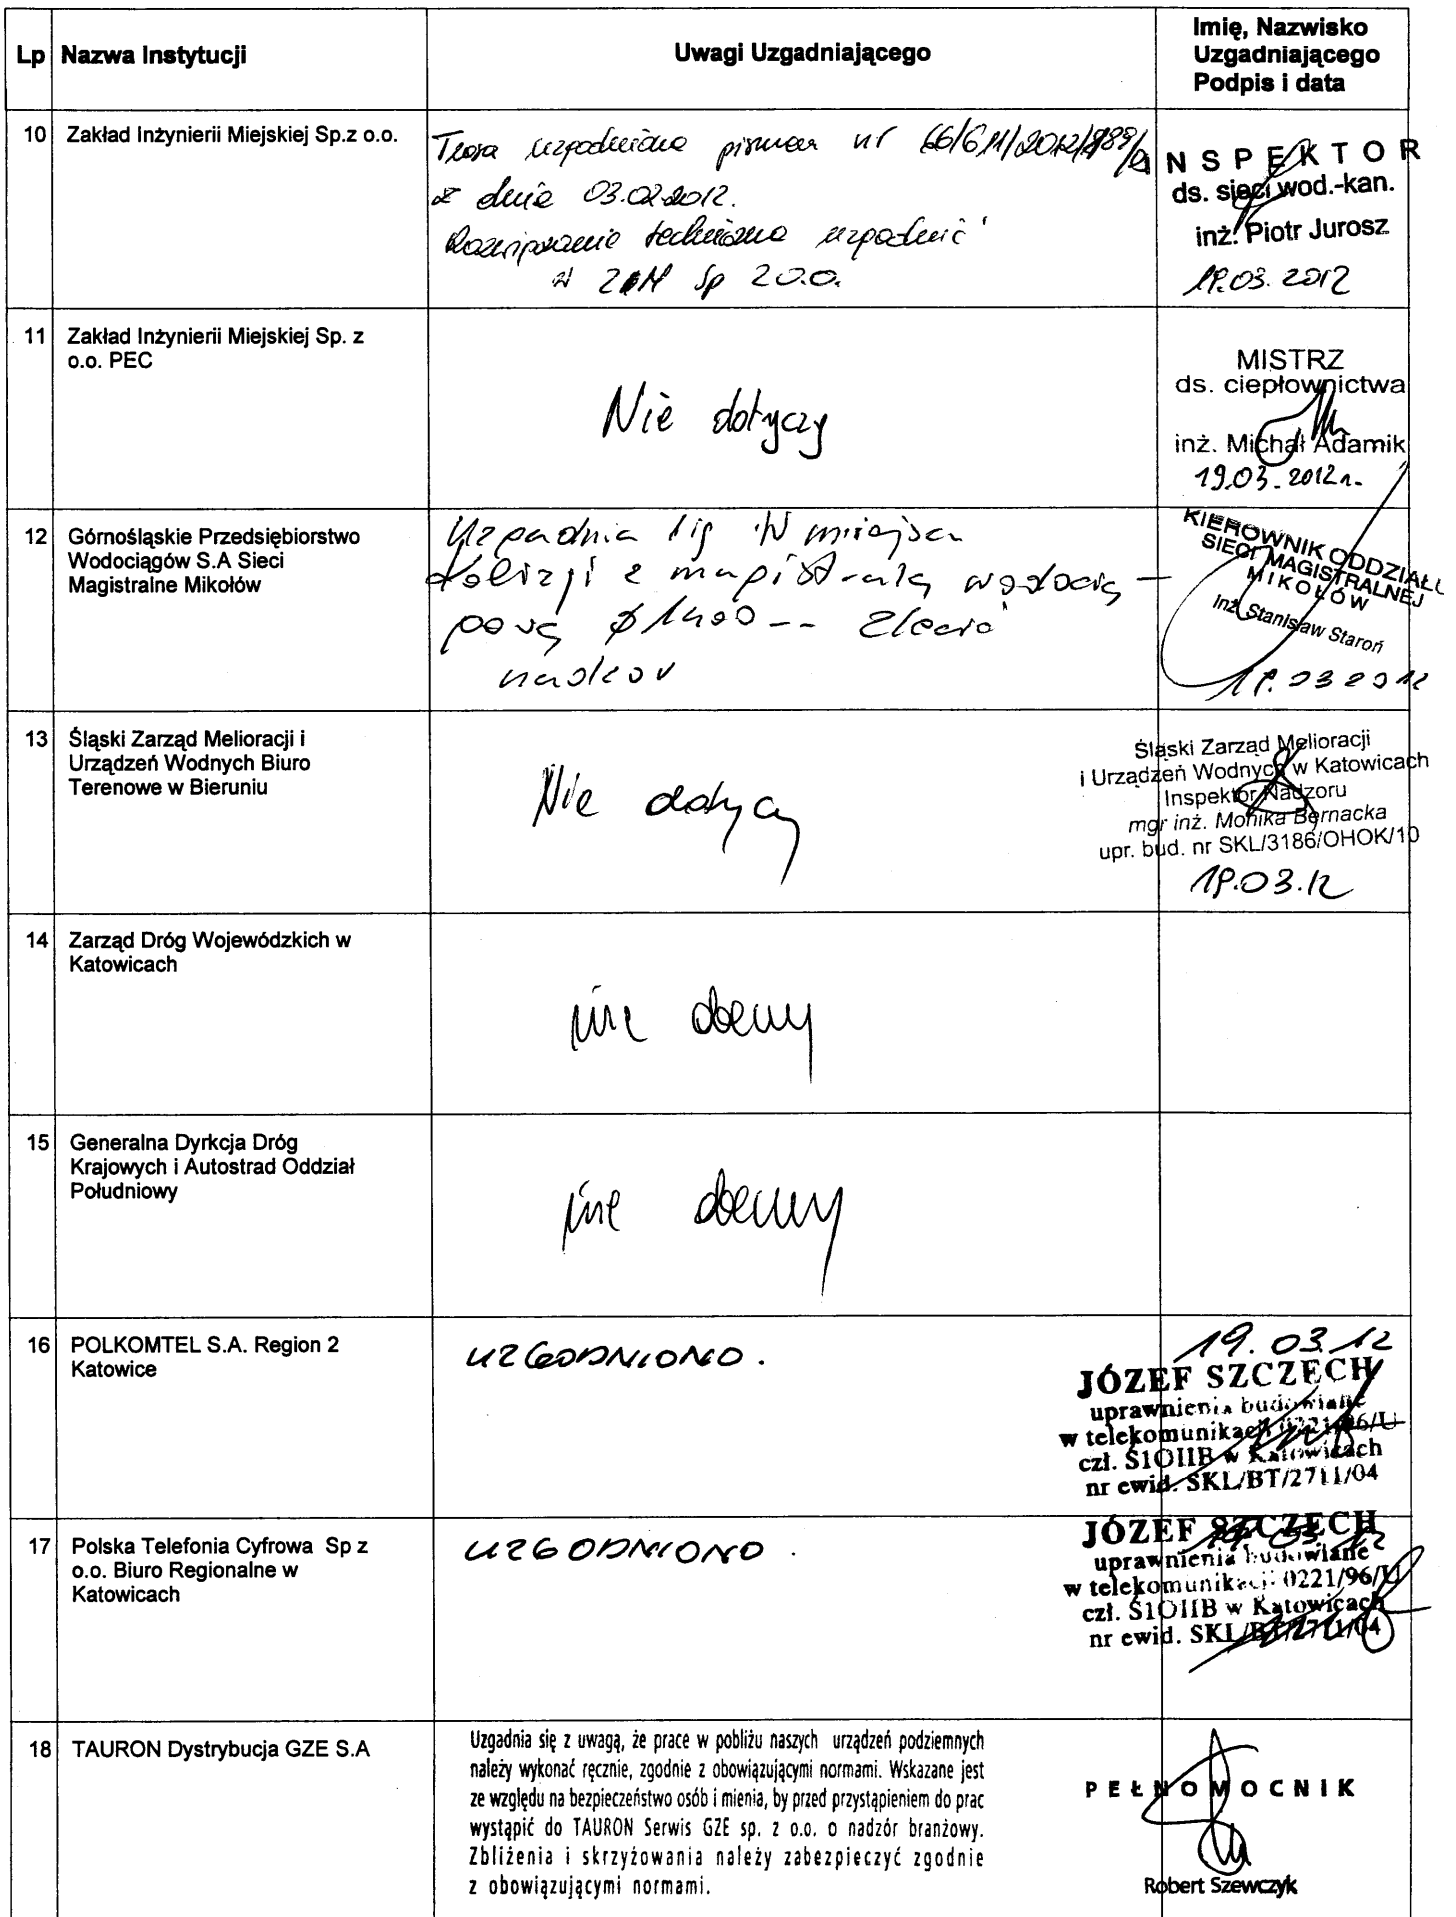 Lp Nazwa Instytucji Uwagi Uzgadniającego Imię, Nazwisko
Uzgadniającego
Podpis i data
10 Zakład Inżynierii Miejskiej Sp.z o.o.
Trasa uzgodniona pismem nr
z dnia 03.02.2012.
Rozwiązanie techniczne uzgodnić
w ZIM Sp z o.o.
INSPEKTOR
ds. sieci wod.-kan.
inż. Piotr Jurosz
19.03.2012
11 Zakład Inżynierii Miejskiej Sp. z
o.o. PEC
Nie dotyczy
MISTRZ
ds. ciepłownictwa
inż. Michał Adamik
19.03.2012r.
12 Górnośląskie Przedsiębiorstwo
Wodociągów S.A Sieci
Magistralne Mikołów
Uzgadnia się W miejscu
kolizji z magistralą wodocią-
gową ø1400 -- zlecić
nadzór
KIEROWNIK ODDZIAŁU
SIECI MAGISTRALNEJ
MIKOŁÓW
Inż. Stanisław Staroń
19.03 2012
13 Śląski Zarząd Melioracji i
Urządzeń Wodnych Biuro
Terenowe w Bieruniu
Nie dotyczy
Śląski Zarząd Melioracji
i Urządzeń Wodnych w Katowicach
Inspektor Nadzoru
mgr inż. Monika Bernacka
upr. bud. nr SKL/3186/OHOK/10
19.03.12
14 Zarząd Dróg Wojewódzkich w
Katowicach
nie dotyczy
15 Generalna Dyrkcja Dróg
Krajowych i Autostrad Oddział
Południowy
nie dotyczy
16 POLKOMTEL S.A. Region 2
Katowice
UZGODNIONO.
19.03.12
JÓZEF SZCZECH
uprawnienia budowlane
w telekomunikacji 0221/96/U
czł. ŚlOIIB w Katowicach
nr ewid. SKL/BT/2711/04
17 Polska Telefonia Cyfrowa Sp z
o.o. Biuro Regionalne w
Katowicach
UZGODNIONO.
19.03.12
JÓZEF SZCZECH
uprawnienia budowlane
w telekomunikacji 0221/96/U
czł. ŚlOIIB w Katowicach
nr ewid. SKL/BT/2711/04
18 TAURON Dystrybucja GZE S.A
Uzgadnia się z uwagą, że prace w pobliżu naszych urządzeń podziemnych
należy wykonać ręcznie, zgodnie z obowiązującymi normami. Wskazane jest
ze względu na bezpieczeństwo osób i mienia, by przed przystąpieniem do prac
wystąpić do TAURON Serwis GZE sp. z o.o. o nadzór branżowy.
Zbliżenia i skrzyżowania należy zabezpieczyć zgodnie
z obowiązującymi normami.
PEŁNOMOCNIK
Robert Szewczyk